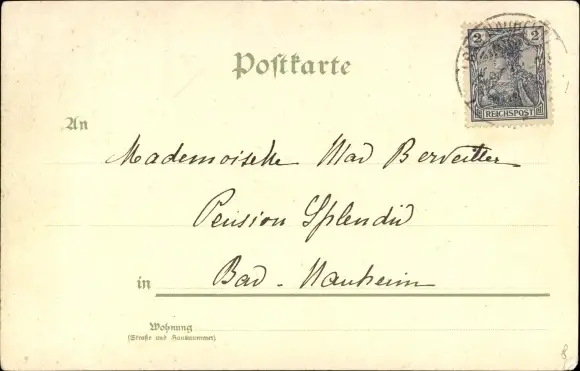 2 2
REICHSPOST
Postkarte
An
Mademoiselle Mad
Pension Splendid
in Bad-Nauheim
Wohnung
(Straße und Hausnummer)